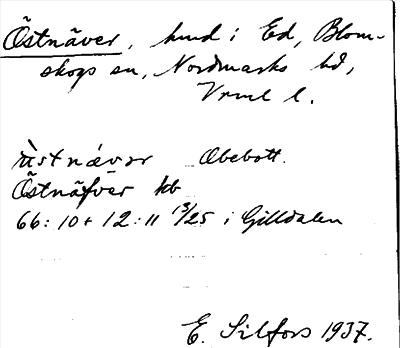 Östnäver, hmd i Ed, Blom-
skogs sn, Nordmarks hd,
Vrml l.
östnǽvər Obebott.
Östnäfver kb
66:10+12:11 13/25 i Gilldalen
E. Silfors 1937.